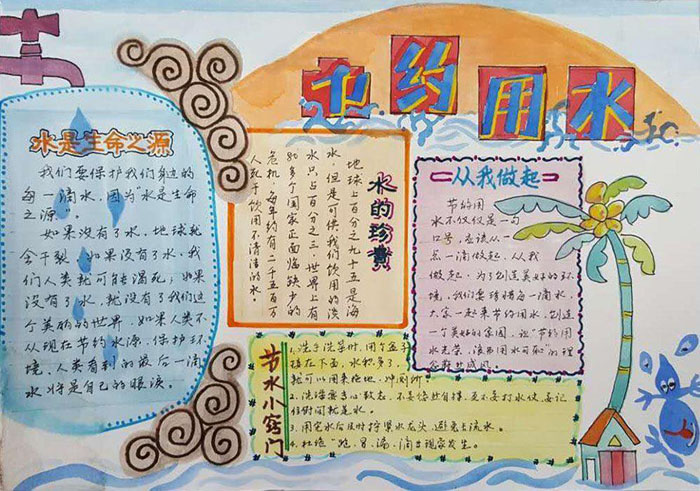 节约用水
水是生命之源
我们要保护我们身边的
每一滴水，因为“水是生命
之源”。
如果没有了水，地球就
会干裂，如果没有了水，我
们人类就可能渴死，如果
没有了水，就没有了我们这
个美丽的世界，如果人类不
从现在节约水源，保护环
境，人类看到的最后一滴
水将是自己的眼泪。
水的珍贵
地球上百分之九十五是海
水，但是可供我们饮用的淡
水只占百分之三，世界上有
80多个国家正面临缺少的
危机，每年约有二千五百万
人死于饮用不清洁的水。
从我做起
节约用
水不仅仅是一句
口号，应该从
点一滴做起，从我
做起，为了创造美好的环
境，我们要珍惜每一滴水，
大家一起来节约用水，创造
一个美好的家园，让“节约用
水光荣，浪费用水可耻”的理
节水小窍门
1.洗手洗菜时，用个盆子
接在下面，水积多了，
就可以用来拖地、冲厕所。
2.洗澡要专心致志，
时间就是水。
3.用完水后及时拧紧水龙头，避免长流水。
4.杜绝“跑、冒、滴、漏”现象发生。